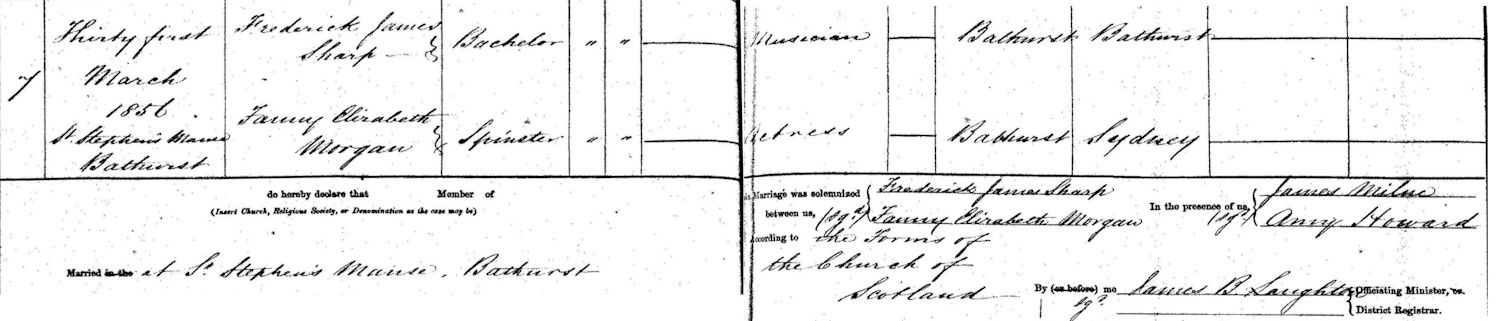 7
Thirty first
March
1856
St. Stephen's Manse
Bathurst
Frederick James
Sharp
Bachelor " "
Musician
Bathurst Bathurst
Fanny Elizabeth
Morgan
Spinster " "
Actress
Bathurst Sydney
do hereby declare that Member of
(Insert Church, Religious Society, or Denomination as the case may be)
Married in the at St Stephen's Manse, Bathurst
Marriage was solemnized Frederick James Sharp
between us, (sgd) Fanny Elizabeth Morgan
According to the Forms of
the Church of
Scotland
In the presence of us, James Milne
(sgd) Amy Howard
By (or before) me James B Laughton Officiating Minister, or
sgd District Registrar.